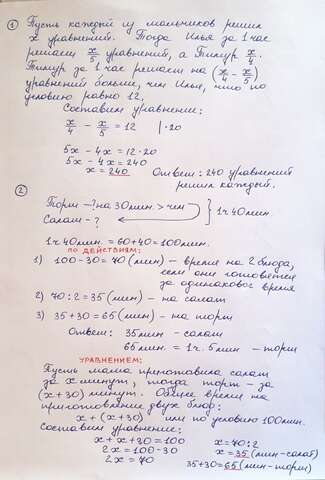 ① Пусть каждый из мальчиков решил
x уравнений. Тогда Илья за 1 час
решает x/5 уравнений, а Тимур x/4.
Тимур за 1 час решает на (x/4 - x/5)
уравнений больше, чем Илья, что по
условию равно 12.
Составим уравнение:
x/4 - x/5 = 12 | ·20
5x - 4x = 12·20
5x - 4x = 240
x = 240 Ответ: 240 уравнений
решил каждый.
②
Торт - ? на 30 мин. > чем
Салат - ? } 1ч 40мин
1ч 40мин. = 60+40 = 100мин.
ПО ДЕЙСТВИЯМ:
1) 100-30 = 70 (мин) - время на 2 блюда,
если они готовятся
за одинаковое время
2) 70:2 = 35 (мин) - на салат
3) 35+30 = 65 (мин) - на торт
Ответ: 35мин - салат
65мин. = 1ч. 5мин. - торт
УРАВНЕНИЕМ:
Пусть мама приготовила салат
за x минут, тогда торт - за
(x+30) минут. Общее время на
приготовление двух блюд:
x + (x+30) или по условию 100мин.
Составим уравнение:
x + x + 30 = 100
2x = 100-30
2x = 70
x = 70:2
x = 35 (мин-салат)
35+30 = 65 (мин-торт)